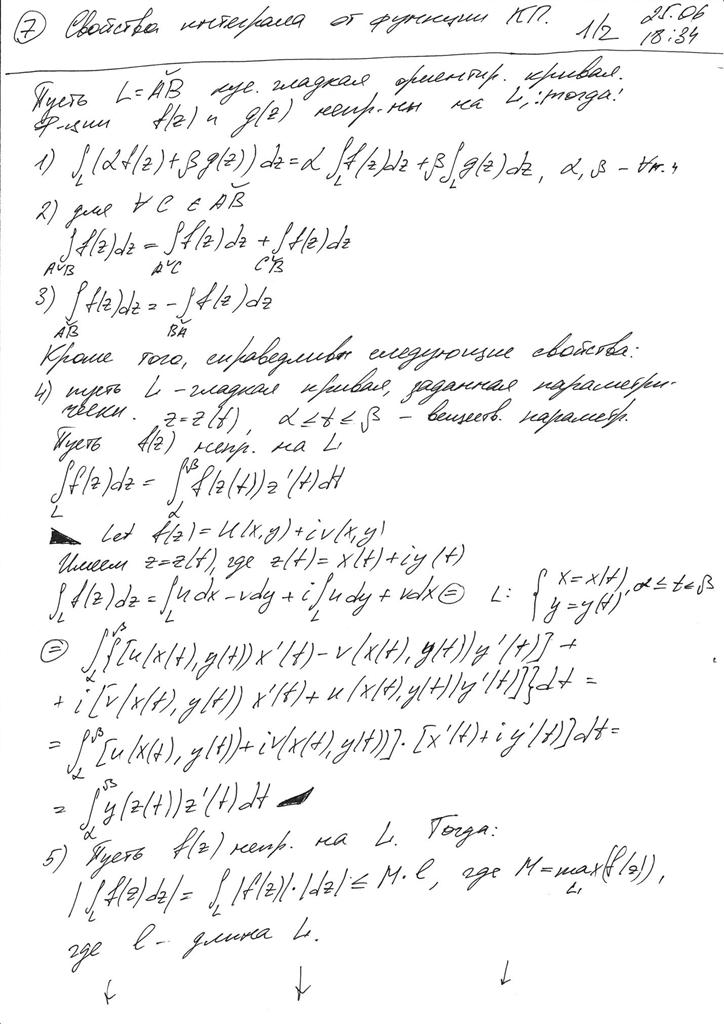 ⑦ Свойства интеграла от функции КП. 1/2 25.06
18:34
Пусть L = A͝B кус. гладкая ориентир. кривая.
Ф-ции f(z) и g(z) непр-ны на L, тогда:
1) ∫_L (αf(z) + βg(z)) dz = α ∫_L f(z)dz + β ∫_L g(z)dz, α, β –
2) для ∀ C ∈ A͝B
∫_{A͝B} f(z)dz = ∫_{A͝C} f(z)dz + ∫_{C͝B} f(z)dz
3) ∫_{A͝B} f(z)dz = - ∫_{B͝A} f(z)dz
Кроме того, справедливы следующие свойства:
4) пусть L – гладкая кривая, заданная параметри-
чески. z = z(t), α ≤ t ≤ β – веществ. параметр.
Пусть f(z) непр. на L
∫_L f(z)dz = ∫_α^β f(z(t)) z'(t)dt
Let f(z) = u(x,y) + iv(x,y)
Имеем z = z(t), где z(t) = x(t) + iy(t)
∫_L f(z)dz = ∫_L udx - vdy + i ∫_L udy + vdx ⊜ L: { x = x(t), y = y(t), α ≤ t ≤ β
⊜ ∫_α^β {[u(x(t), y(t)) x'(t) - v(x(t), y(t)) y'(t)] +
+ i [v(x(t), y(t)) x'(t) + u(x(t), y(t)) y'(t)]} dt =
= ∫_α^β [u(x(t), y(t)) + iv(x(t), y(t))] · [x'(t) + iy'(t)] dt =
= ∫_α^β y(z(t)) z'(t) dt
5) Пусть f(z) непр. на L. Тогда:
|∫_L f(z)dz| = ∫_L |f(z)|·|dz| ≤ M·l, где M = max_L (f(z)),
где l – длина L.
↓ ↓ ↓